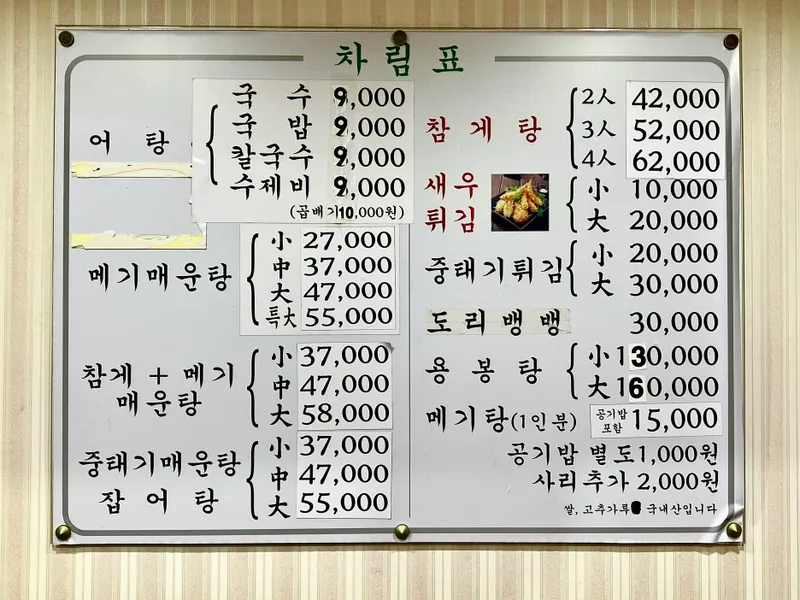 차림표
어 탕
국 수 9,000
국 밥 9,000
칼국수 9,000
수제비 9,000
(곱배기10,000원)
메기매운탕
小 27,000
中 37,000
大 47,000
특大 55,000
참게 + 메기
매운탕
小 37,000
中 47,000
大 58,000
중태기매운탕
잡 어 탕
小 37,000
中 47,000
大 55,000
참 게 탕
2人 42,000
3人 52,000
4人 62,000
새우
튀김
小 10,000
大 20,000
중태기튀김
小 20,000
大 30,000
도리뱅뱅 30,000
용 봉 탕
小 130,000
大 160,000
메기탕(1인분) 공기밥 포함 15,000
공기밥 별도1,000원
사리추가 2,000원
쌀, 고추가루 국내산입니다